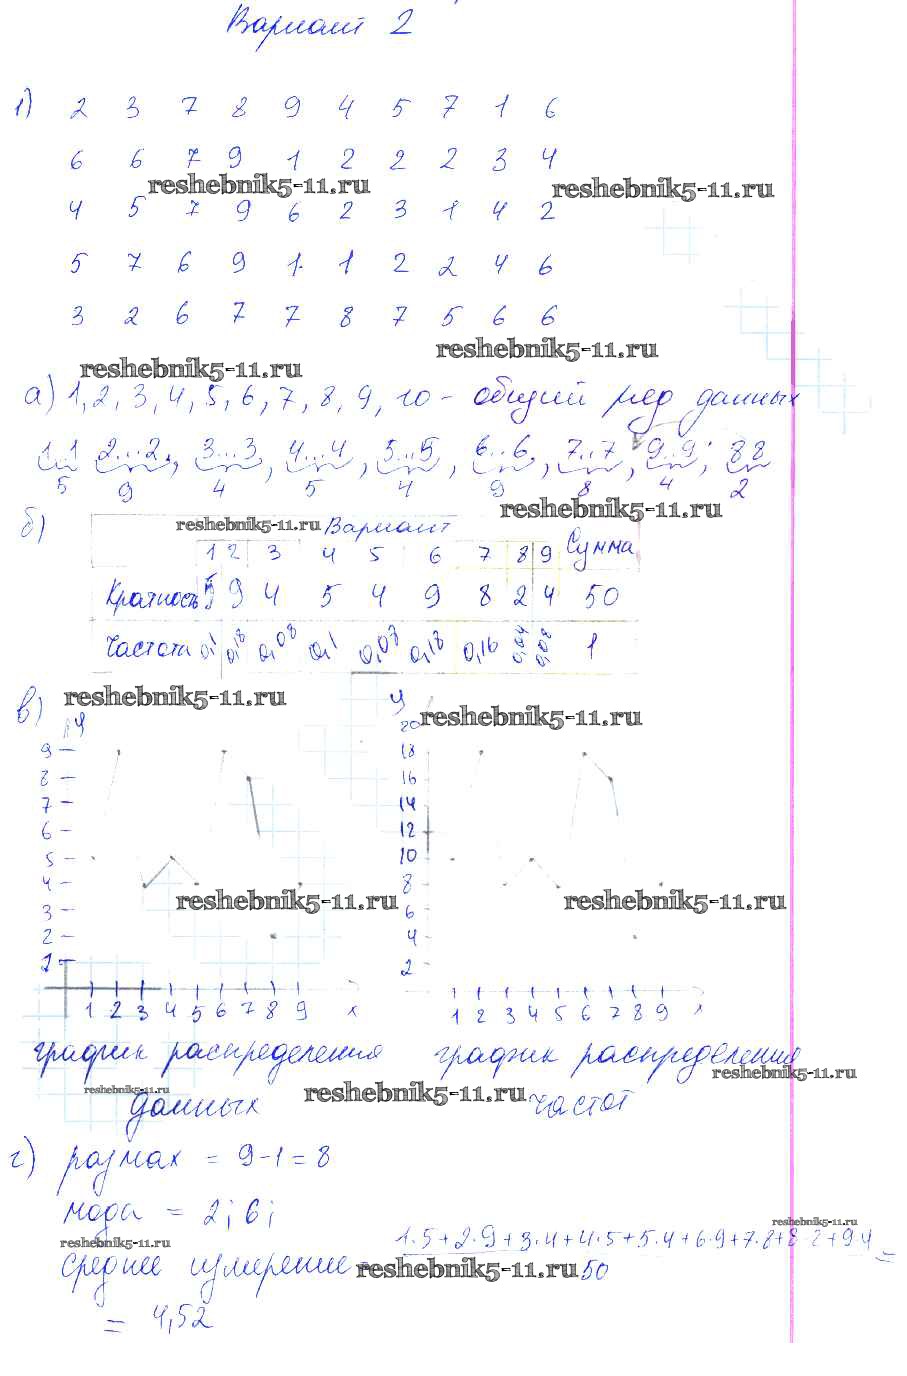 Вариант 2
1) 2 3 7 8 9 4 5 7 1 6
6 6 7 9 1 2 2 2 3 4
reshebnik5-11.ru reshebnik5-11.ru
4 5 7 9 6 2 3 1 4 2
5 7 6 9 1 1 2 2 4 6
3 2 6 7 7 8 7 5 6 6
reshebnik5-11.ru reshebnik5-11.ru
а) 1, 2, 3, 4, 5, 6, 7, 8, 9, 10 - общий ряд данных
1..1 2...2, 3...3, 4...4, 5...5, 6...6, 7..7, 9..9, 88
5 9 4 5 4 9 8 4 2
reshebnik5-11.ru
б) reshebnik5-11.ru Вариант
1 2 3 4 5 6 7 8 9 Сумма
Кратность 5 9 4 5 4 9 8 2 4 50
Частота 0,1 0,18 0,08 0,1 0,08 0,18 0,16 0,04 0,08 1
в) reshebnik5-11.ru reshebnik5-11.ru
у у
20
9 18
8 16
7 14
6 12
5 10
4 8
reshebnik5-11.ru reshebnik5-11.ru
3 6
2 4
1 2
1 2 3 4 5 6 7 8 9 х 1 2 3 4 5 6 7 8 9 х
график распределения график распределения
reshebnik5-11.ru reshebnik5-11.ru reshebnik5-11.ru
данных частот
г) размах = 9-1=8
мода = 2; 6;
reshebnik5-11.ru reshebnik5-11.ru
1·5+2·9+3·4+4·5+5·4+6·9+7·8+8·2+9·4 =
среднее измерение reshebnik5-11.ru 50
= 4,52